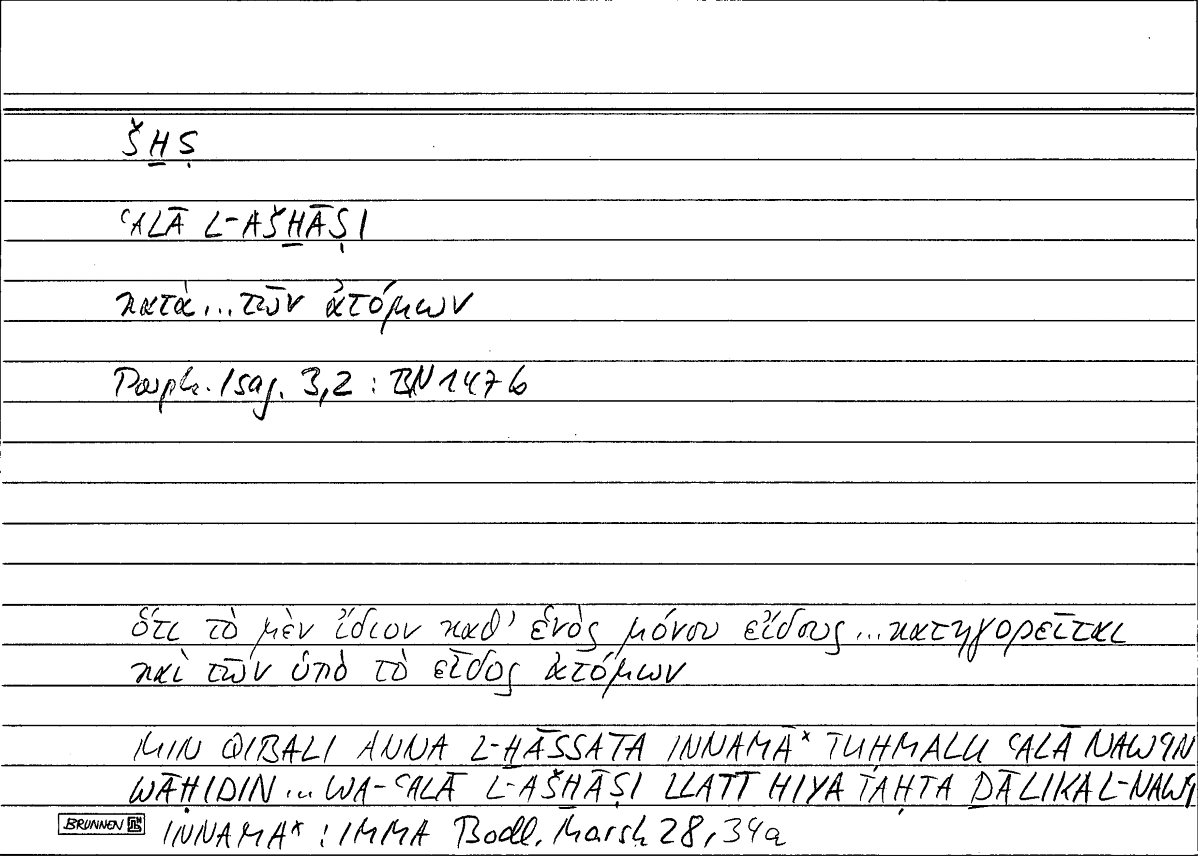 ŠḪṢ
ʿALĀ L-AŠḪĀṢI
κατὰ... τῶν ἀτόμων
Porph. Isag. 3,2 : BN 147b
ὅτι τὸ μὲν ἴδιον καθ' ἑνὸς μόνου εἴδους... κατηγορεῖται
καὶ τῶν ὑπὸ τὸ εἶδος ἀτόμων
MIN QIBALI ANNA L-ḪĀṢṢATA INNAMĀ* TUḤMALU ʿALĀ NAWʿIN
WĀḤIDIN ... WA-ʿALĀ L-AŠḪĀṢI LLATĪ HIYA TAḤTA ḎĀLIKA L-NAWʿI
BRUNNEN INNAMA* : IMMA Bodl. Marsh 28, 34a